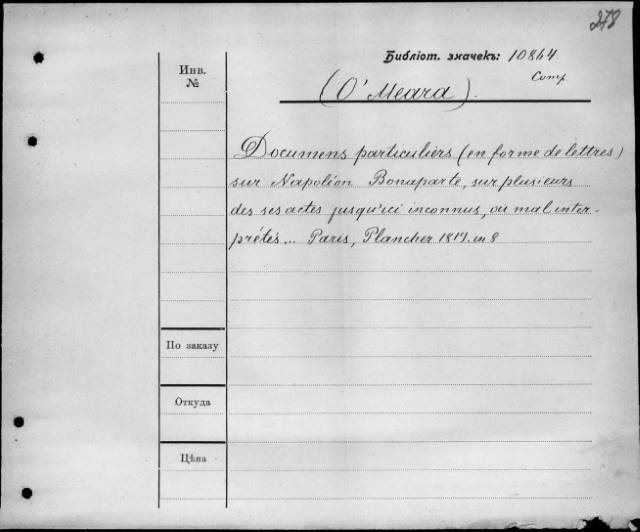 278
Библіот. значекъ: 10864
Comp.
Инв.
№
(O' Meara).
Documens particuliers (en forme de lettres)
sur Napoléon Bonaparte, sur plusieurs
des ses actes jusqu'ici inconnus, ou mal inter-
prétés... Paris, Plancher 1819. in 8
По заказу
Откуда
Цѣна